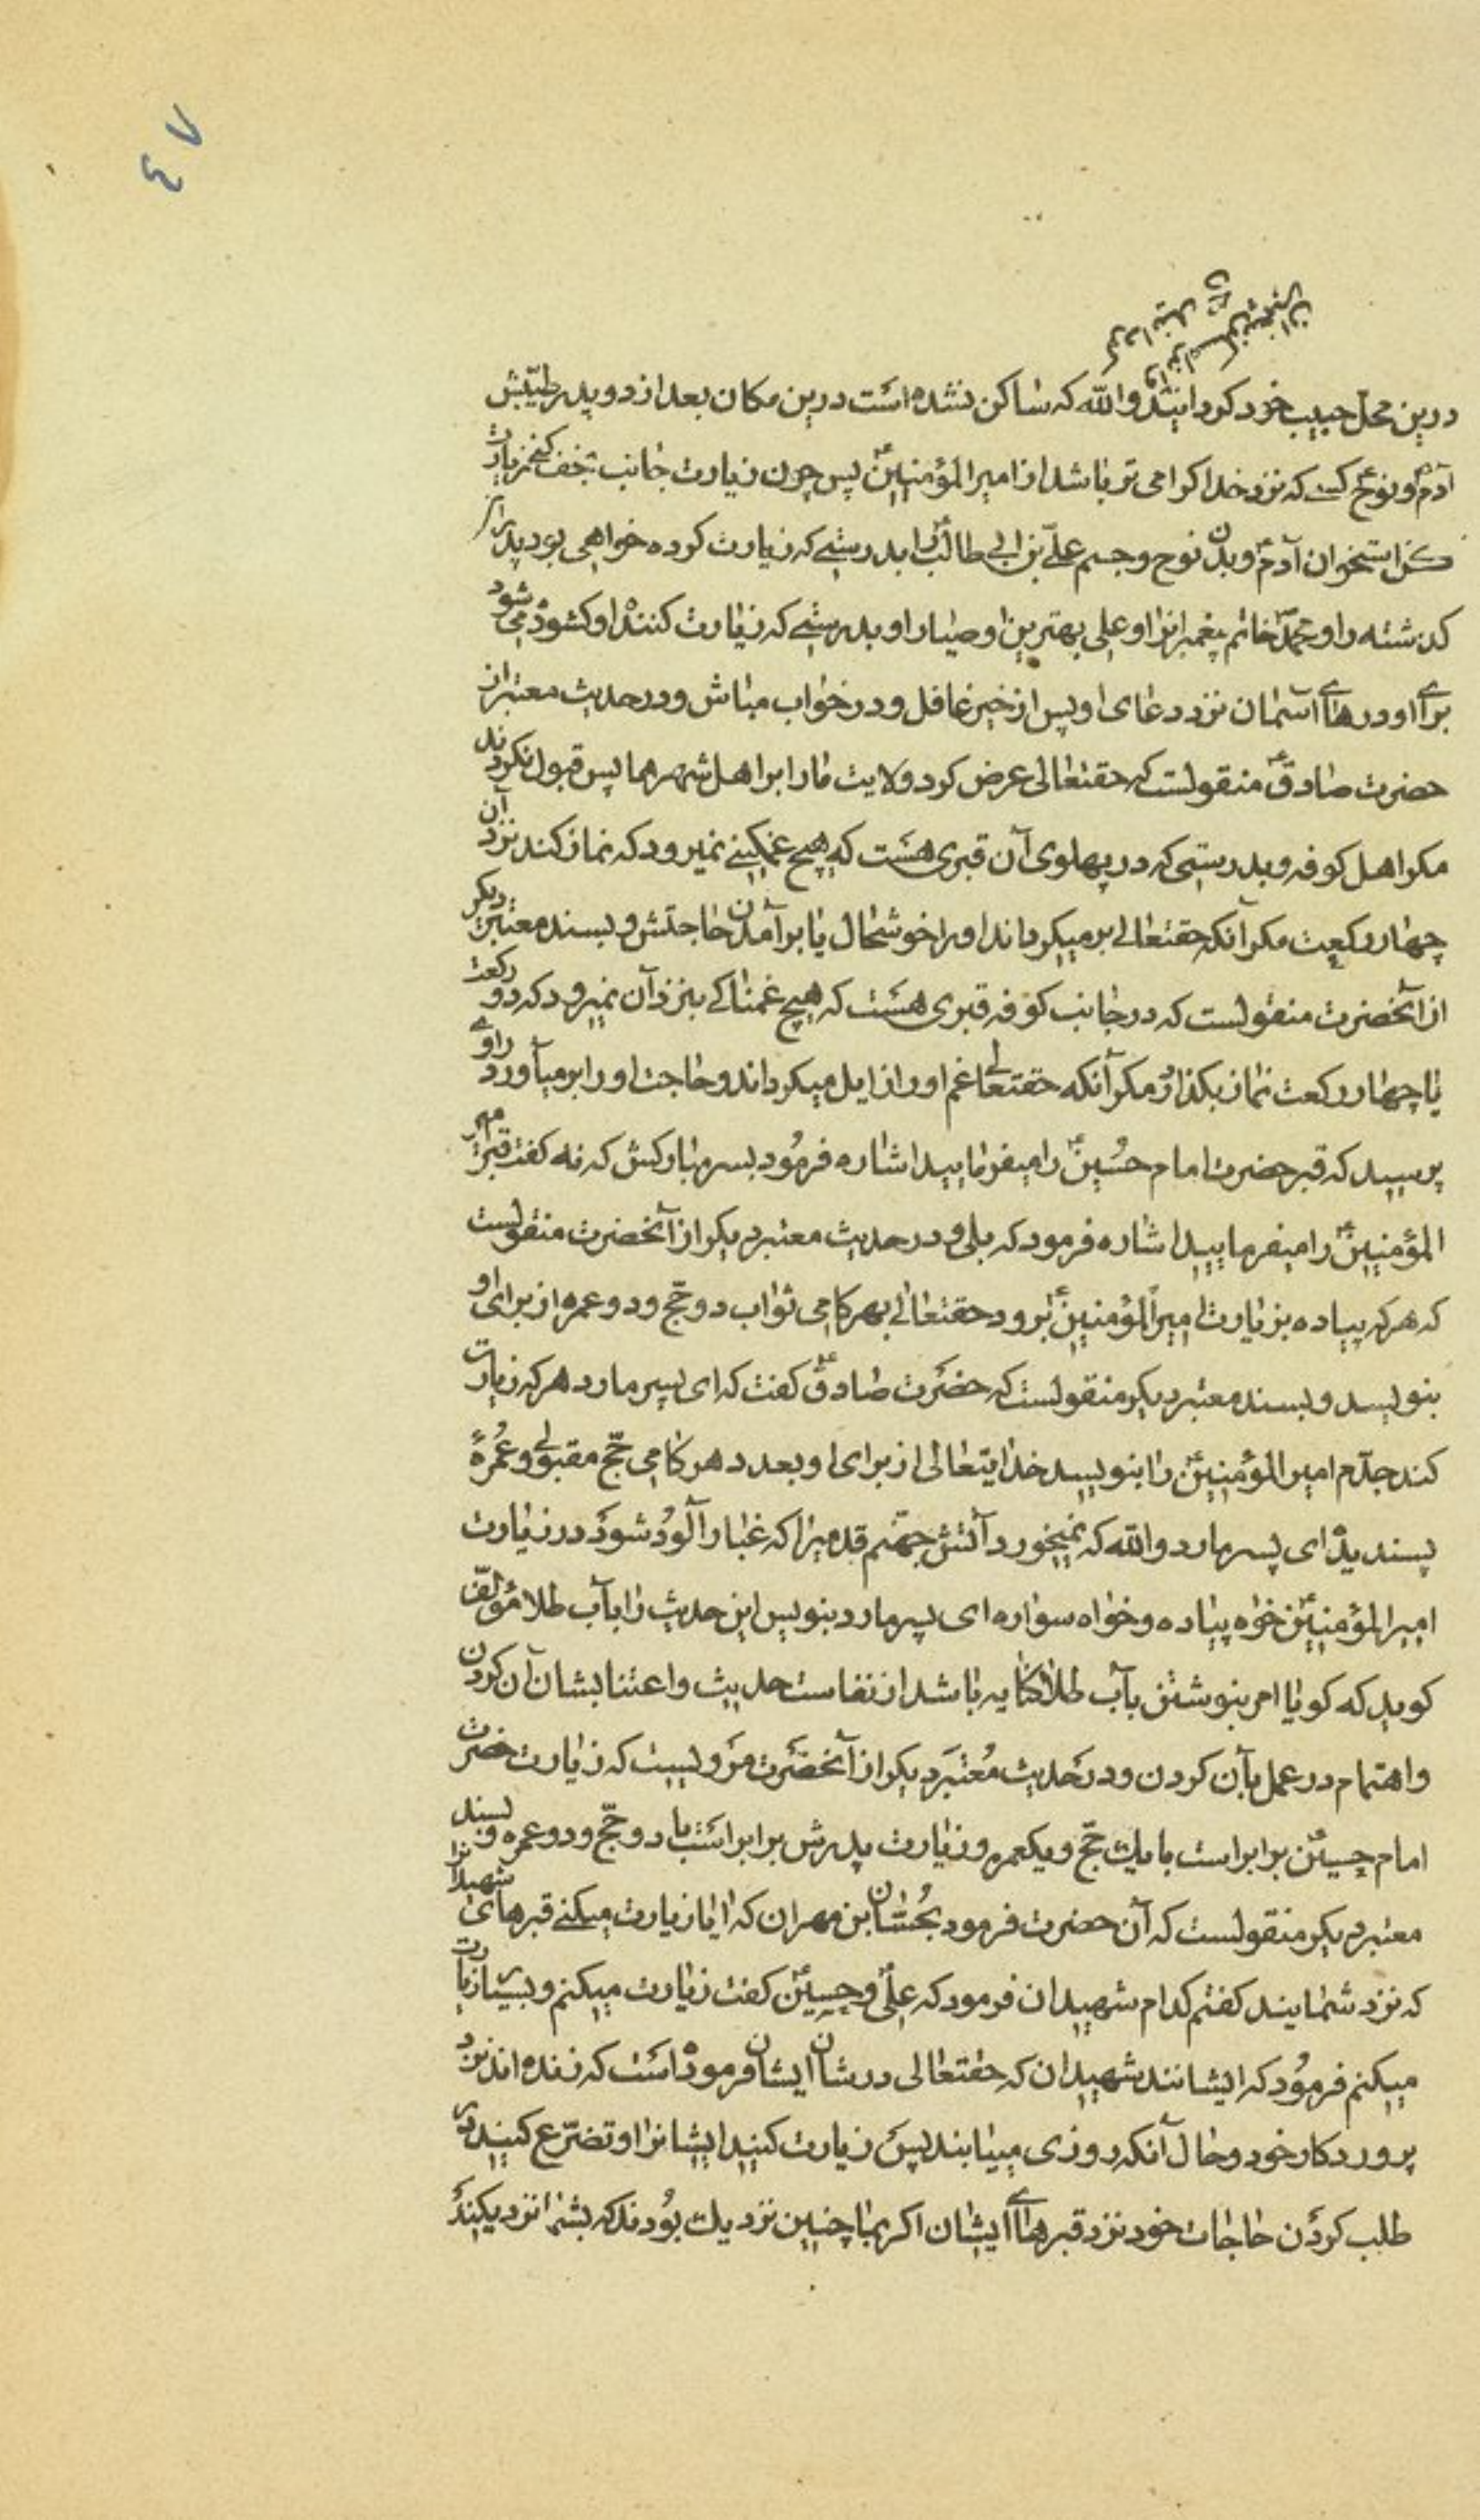 ٤٧
درین محل حبیب خود کردانید والله که ساکن نشده است درین مکان بعد از دو پدر طیّبش
آدمؑ و نوحؑ کسی که نزد خدا کرامی تر باشد از امیرالمؤمنینؑ پس چون زیارت جانب نجف کنی زیارت
کن استخوان آدمؑ و بدن نوح و جسم علیّ بن ابی طالبؑ را بدرستی که زیارت کرده خواهی بود پدران
کذشته را و محمدؐ خاتم پیغمبرانرا و علی بهترین اوصیارا و بدرستی که زیارت کنندۀ او کشوده می شود
برای او درهای آسمان نزد دعای او پس از خیر غافل و در خواب مباش و در حدیث معتبر از
حضرت صادقؑ منقولست که حقتعالی عرض کرد ولایت مارا بر اهل شهرها پس قبول نکردند
مکر اهل کوفه و بدرستی که در پهلوی آن قبری هست که هیچ غمکینی نمیرود که نماز کند نزد آن
چهار رکعت مکر آنکه حقتعالی برمیکرداند او را خوشحال با برآمدن حاجتش و بسند معتبر دیکر
از آنحضرت منقولست که در جانب کوفه قبری هست که هیچ غمناکی بنزد آن نمیرود که دو رکعت
یا چهار رکعت نماز بکذارد مکر آنکه حقتعالی غم او را زایل میکرداند و حاجت او را برمیآورد راوی
پرسید که قبر حضرت امام حسینؑ را میفرمایید اشاره فرمود بسر مبارکش که نه کفت قبر امیر
المؤمنینؑ را میفرمایید اشاره فرمود که بلی و در حدیث معتبر دیکر از آنحضرت منقولست
که هرکه پیاده بزیارت امیرالمؤمنینؑ برود حقتعالی بهر کامی ثواب دو حجّ و دو عمره از برای او
بنویسد و بسند معتبر دیکر منقولست که حضرت صادقؑ کفت که ای پسر مارد هرکه زیارت
کند جدّم امیرالمؤمنینؑ را بنویسد خدایتعالی از برای او بعدد هر کامی حجّ مقبولی و عمرهٔ
پسندیدۀ ای پسر مارد والله که نمیخورد آتش جهنّم قدمیرا که غبار آلود شود در زیارت
امیرالمؤمنینؑ خواه پیاده و خواه سواره ای پسر مارد بنویس این حدیث را بآب طلا مؤلف
کوید که کویا امر بنوشتن بآب طلا کنایه باشد از نفاست حدیث و اعتنا بشان آن کردن
و اهتمام در عمل بآن کردن و در حدیث معتبر دیکر از آنحضرت مرویست که زیارت حضرت
امام حسینؑ برابر است با یك حجّ و یکعمره و زیارت پدرش برابر است با دو حجّ و دو عمره و بسند
معتبر دیکر منقولست که آن حضرت فرمود بحسّان بن مهران که آیا زیارت میکنی قبرهای شهیدانرا
که نزد شمایند کفتم کدام شهیدان فرمود که علیؑ و حسینؑ کفت زیارت میکنم و بسیار زیارت
میکنم فرمود که ایشانند شهیدان که حقتعالی در شان ایشان فرموده است که زنده اند نزد
پروردکار خود و حال آنکه روزی مییابند پس زیارت کنید ایشانرا و تضرّع کنید در
طلب کردن حاجات خود نزد قبرهای ایشان اکر بما چنین نزدیك بودند که بشما نزدیکند